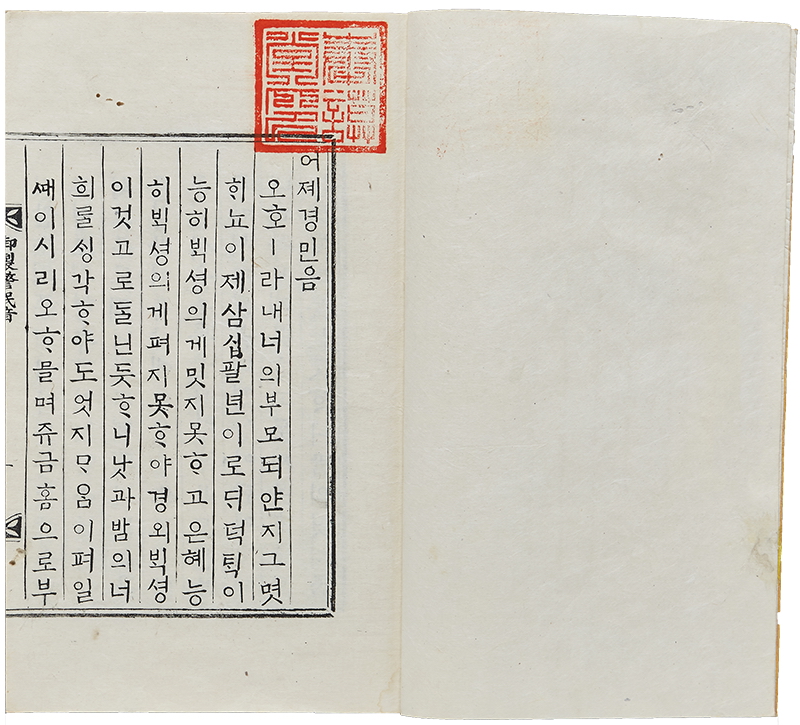 어졔경민음
오호ㅣ라내너의부모되얀지그몃
ᄒᆡ뇨이제삼십팔년이로ᄃᆡ덕ᄐᆡᆨ이
능히ᄇᆡᆨ셩의게밋지못ᄒᆞ고은혜능
히ᄇᆡᆨ셩의게펴지못ᄒᆞ야경외ᄇᆡᆨ셩
이것고로ᄃᆞᆯ닌듯ᄒᆞ니낫과밤의너
희ᄅᆞᆯᄉᆡᆼ각ᄒᆞ야도엇지ᄆᆞ음이펴일
ᄣᅢ이시리오ᄒᆞ믈며쥬금홈으로부
御製警民音
一